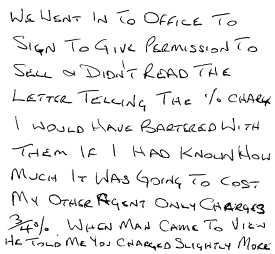 We Went In To Office To
Sign To Give Permission To
Sell & Didn't Read The
Letter Telling The % Charge
I Would Have Bartered With
Them If I Had Known How
Much It Was Going To Cost
My Other Agent Only Charges
3/4%. When Man Came To View
He Told Me You Charged Slightly More